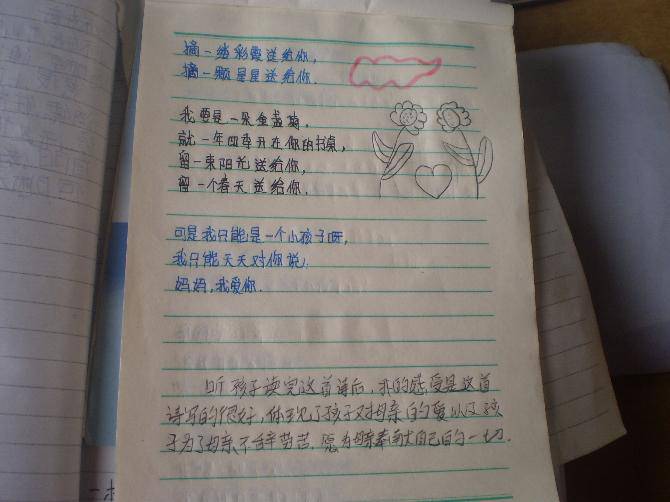 摘一缕彩霞送给你,
摘一颗星星送给你.
我要是一朵金盏菊,
就一年四季开在你的书桌,
留一束阳光送给你,
留一个春天送给你.
可是我只能是一个小孩子呀,
我只能天天对你说:
妈妈,我爱你.
听孩子读完这首诗后,我的感受是这首
诗写的很好,体现了孩子对母亲的爱以及孩
子为了母亲不辞劳苦,愿为母亲奉献自己的一切.